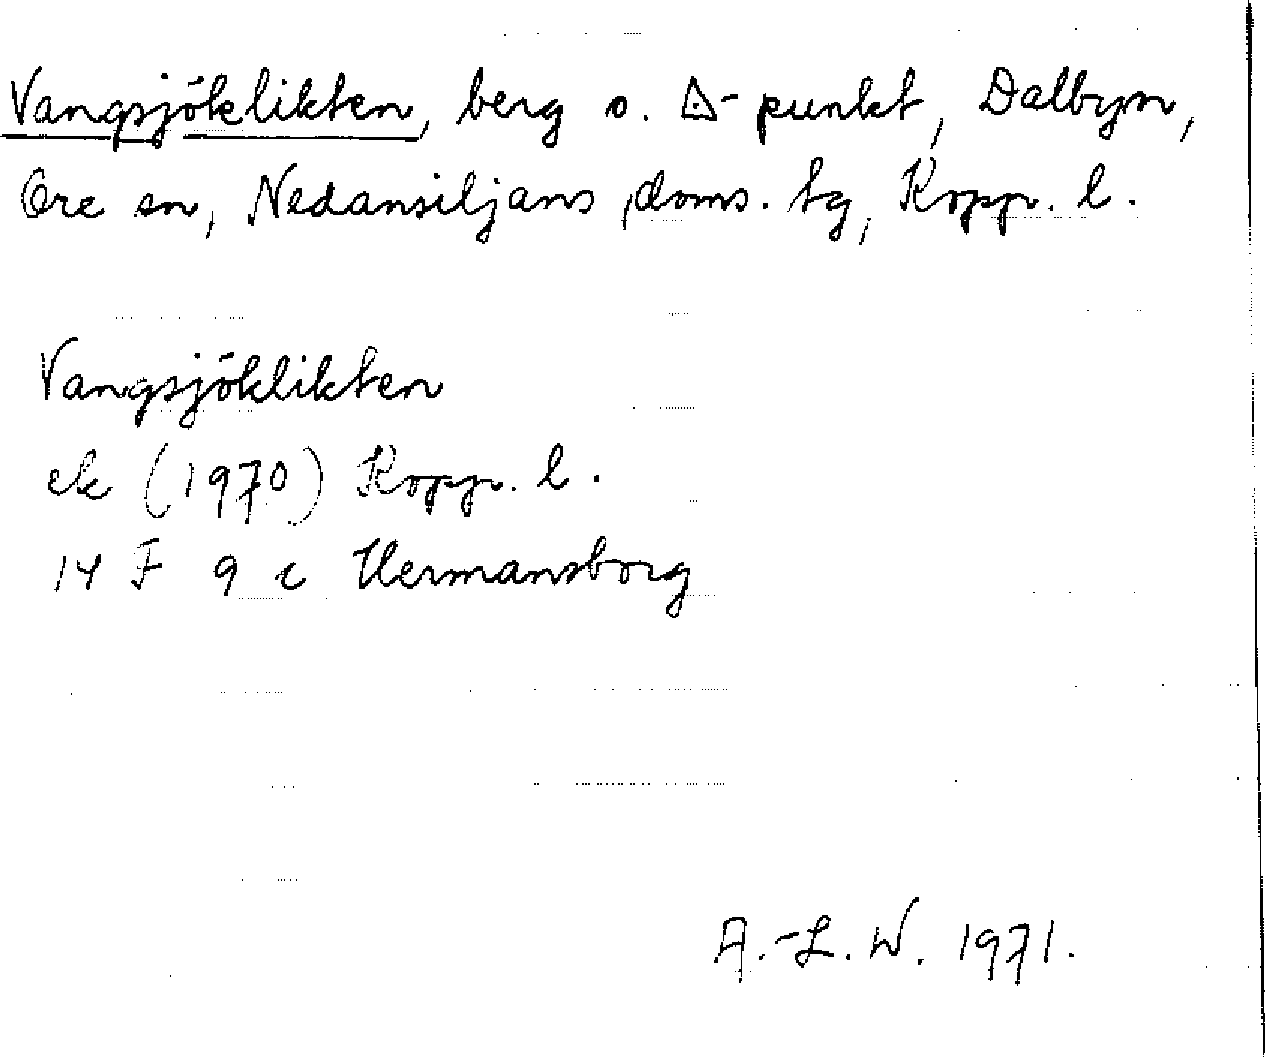 Vangsjöklikten, berg o. △-punkt, Dalbyn,
Ore sn, Nedansiljans doms. tg, Kopp. l.
Vangsjöklikten
ek (1970) Kopp. l.
14 F 9 c Hermansborg
A.-L. W. 1971.